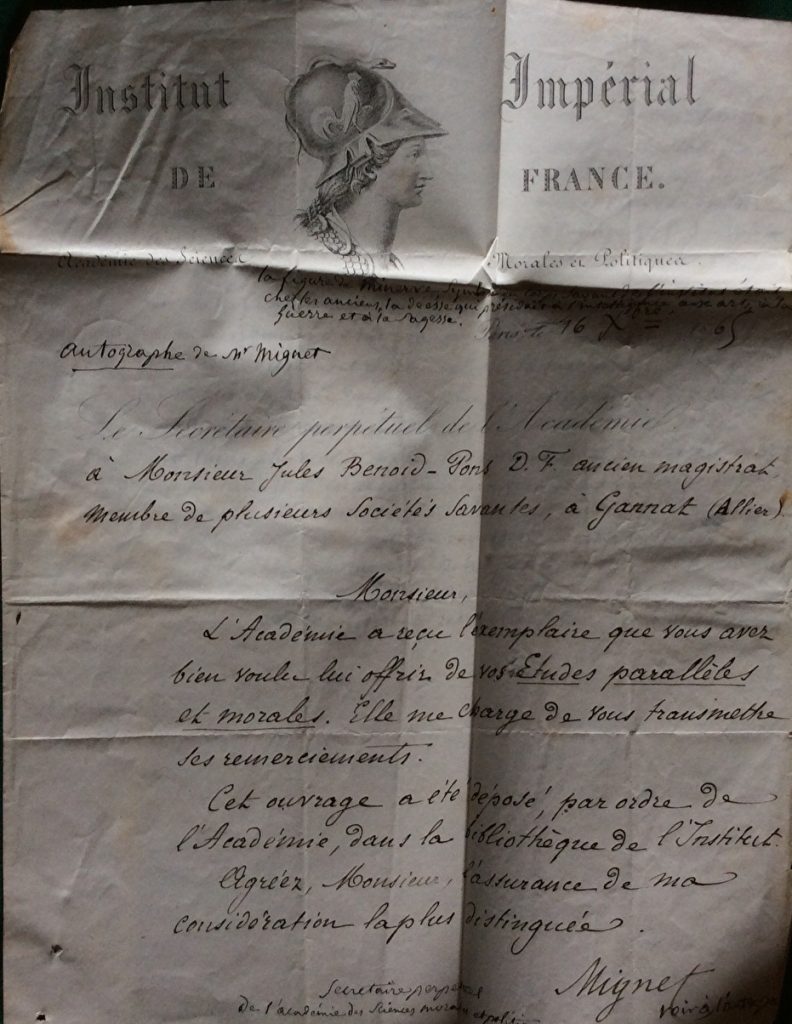 Institut Impérial
DE FRANCE.
Académie des Sciences Morales et Politiques.
la figure de Minerve,
chez les anciens, la déesse qui présidait à aux arts, à la
guerre et à la sagesse.
Paris, le 16 Xbre 1865
Autographe de Mr Mignet
Le Secrétaire perpétuel de l'Académie
à Monsieur Jules Benoid-Pons D. F. ancien magistrat,
membre de plusieurs Sociétés Savantes, à Gannat (Allier)
Monsieur,
L'Académie a reçu l'exemplaire que vous avez
bien voulu lui offrir de vos Etudes parallèles
et morales. Elle me charge de vous transmettre
ses remerciements.
Cet ouvrage a été déposé, par ordre de
l'Académie, dans la bibliothèque de l'Institut.
Agréez, Monsieur, l'assurance de ma
considération la plus distinguée.
Mignet
Secrétaire perpétuel
de l'académie des Sciences morales et polit
voir à